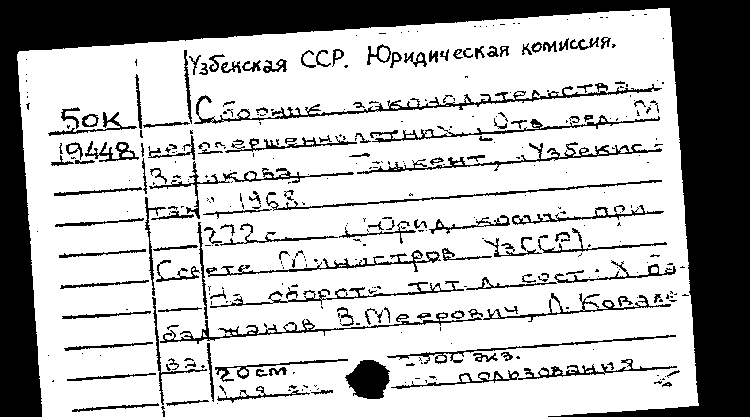 Узбекская ССР. Юридическая комиссия.
50к Сборник законодательства о
19448 несовершеннолетних. [Отв. ред. М
Заликова]. Ташкент, "Узбекис-
тан", 1968.
272 с. (Юрид. комис. при
Совете Министров УзССР).
На обороте тит. л. сост.: Х. Ба-
баджанов, В. Меерович, Л. Ковале-
ва.
20 см. экз.
Для пользования.